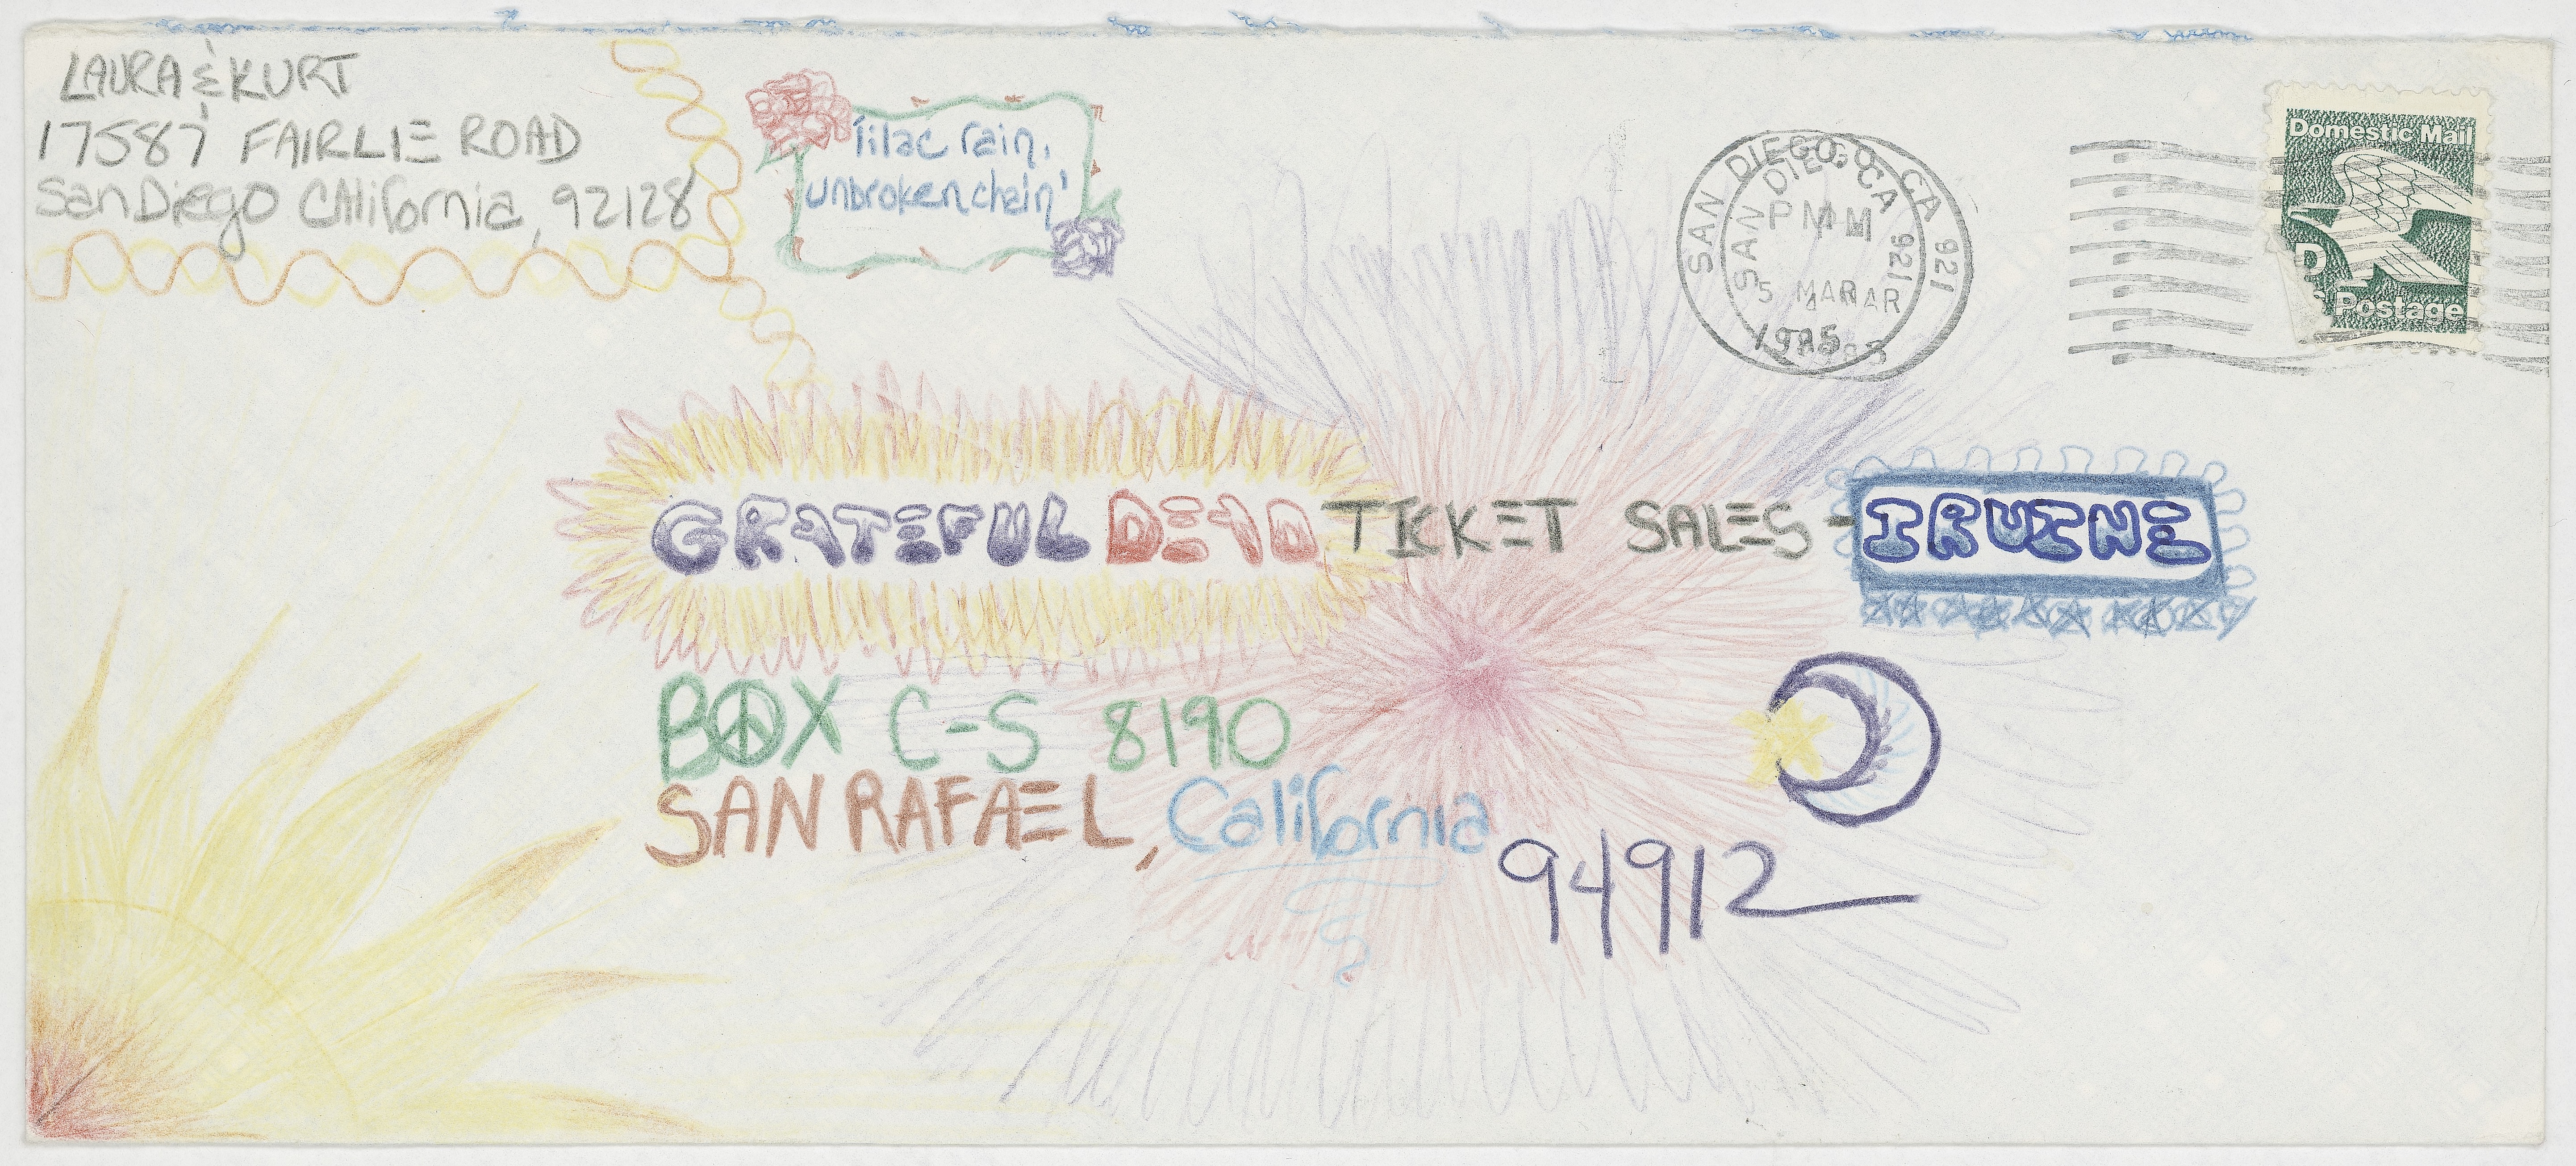 LAURA & KURT
17587 FAIRLIE ROAD
San Diego CAlifornia, 92128
"lilac rain,
unbroken chain"
SAN DIEGO, CA 921
SAN DIEGO CA 921
PM
5 MAR
1985
Domestic Mail
D
Postage
GRATEFUL DEAD TICKET SALES - IRVINE
BOX C-S 8190
SAN RAFAEL, California
94912